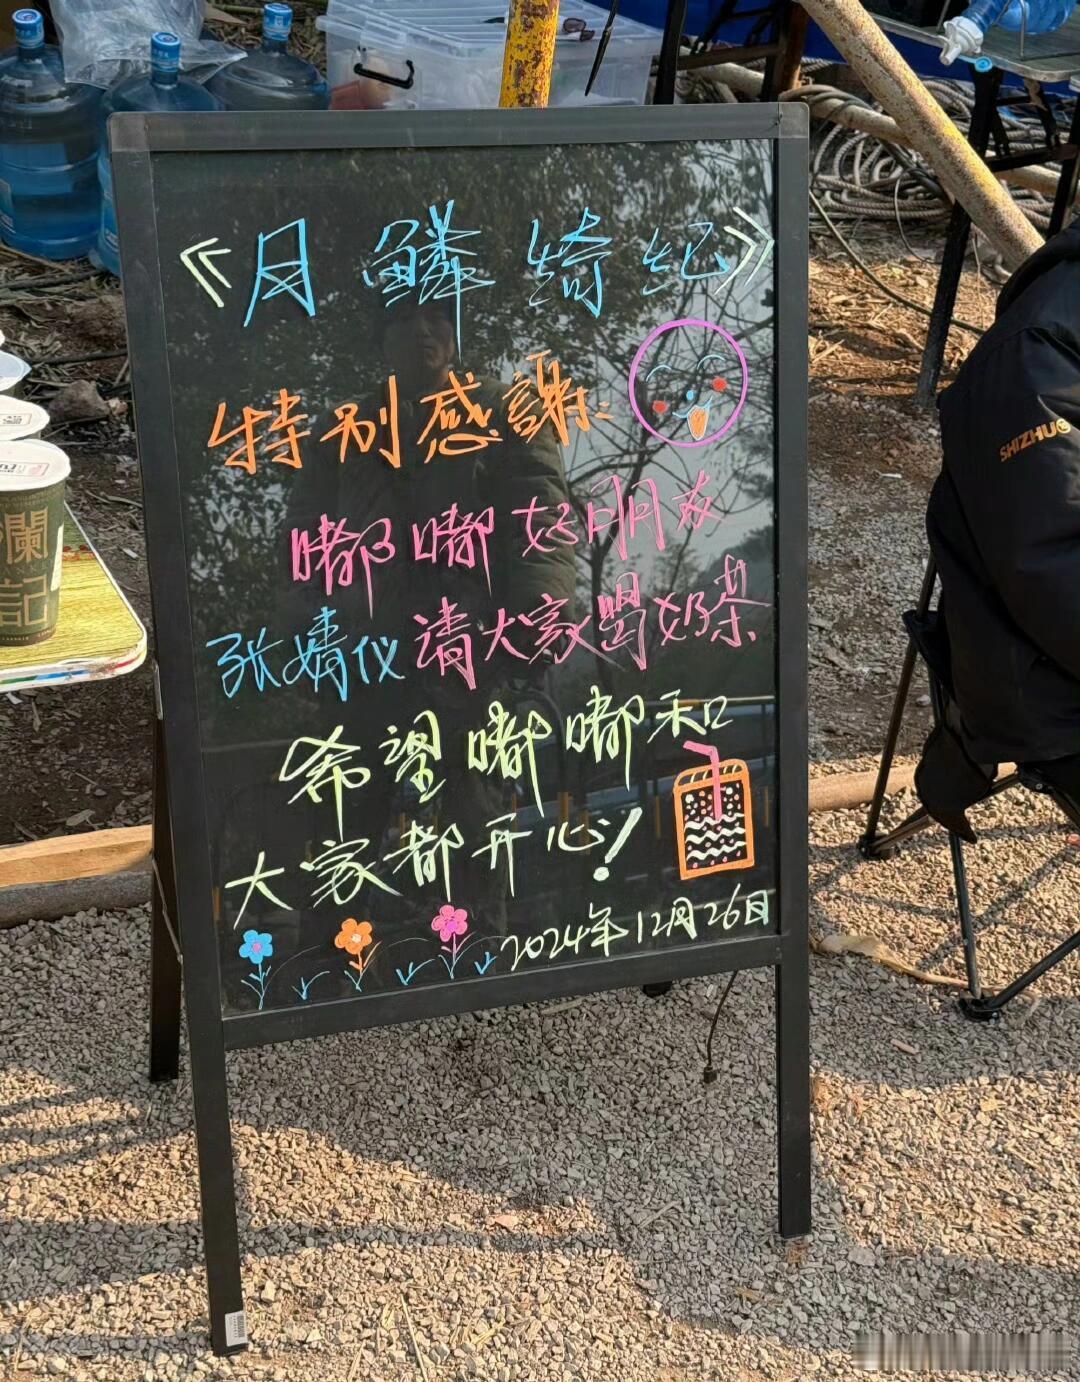 《月鳞绮纪》
特别感謝:
嘟嘟好朋友
张婧仪请大家喝奶茶
希望嘟嘟和
大家都开心!
2024年12月26日
SHIZHU
阑記